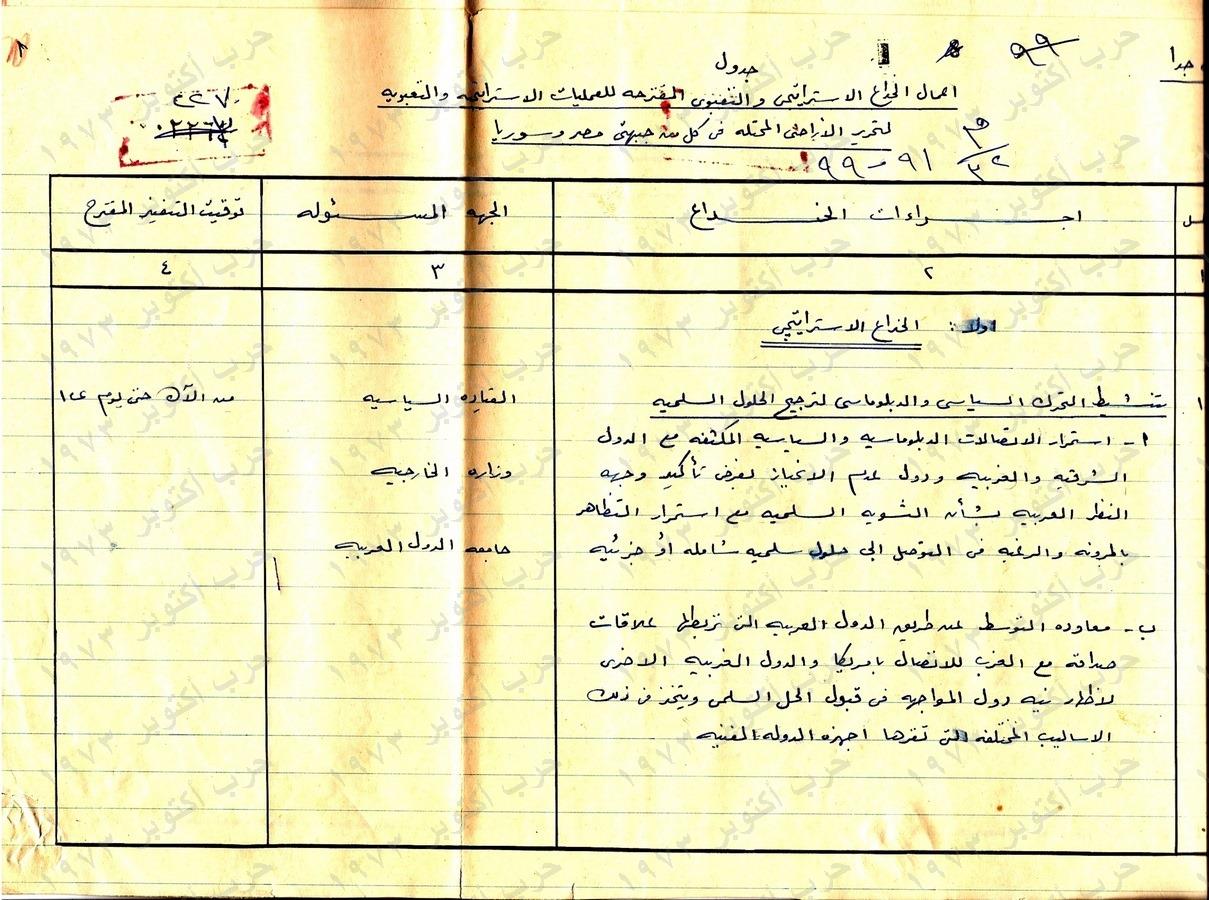 جدا
٩٩
٨
جدول
اعمال الخداع الاستراتيجى و التعبوى المقترحه للعمليات الاستراتيجيه والتعبويه
لتحرير الأراضى المحتله فى كل من جبهتى مصر وسوريا
٢٢٧
٩١ - ٩٩
٩
٣٢
اجراءات الخداع
الجهه المسئوله
توقيت التنفيذ المقترح
٢
٣
٤
اولا : الخداع الاستراتيجى
١
تنشيط التحرك السياسى والدبلوماسى لترجيح الحلول السلميه
ا - استمرار الاتصالات الدبلوماسيه والسياسيه المكثفه مع الدول
الشرقيه والغربيه ودول عدم الانحياز لغرض تأكيد وجهه
النظر العربيه بشأن التسويه السلميه مع استمرار التظاهر
بالمرونه والرغبه فى التوصل الى حلول سلميه شامله أو جزئيه
ب - معاوده التوسط عن طريق الدول العربيه التى تربطها علاقات
صداقه مع الغرب للاتصال بامريكا والدول الغربيه الاخرى
لاظهار نيه دول المواجهه فى قبول الحل السلمى ويتخذ فى ذلك
الاساليب المختلفه التى تقرها اجهزه الدوله المعنيه
القياده السياسيه
وزاره الخارجيه
جامعه الدول العربيه
من الآن حتى يوم
حرب أكتوبر ١٩٧٣